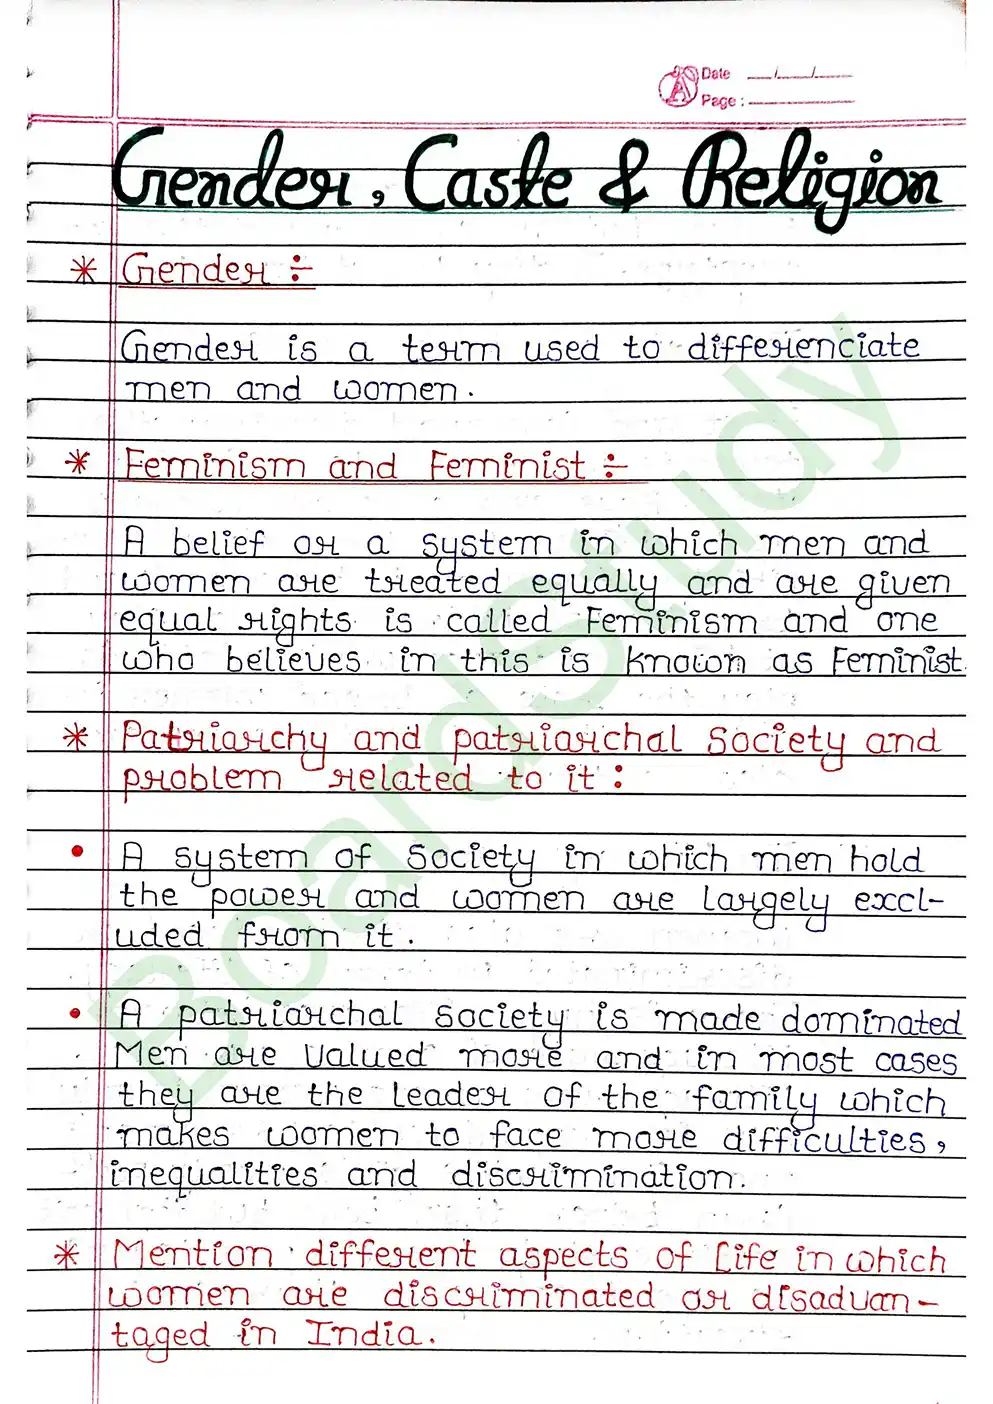 Date __/__/__
Page :
Gender, Caste & Religion
* Gender ÷
Gender is a term used to differenciate
men and women.
* Feminism and Feminist ÷
A belief or a system in which men and
women are treated equally and are given
equal rights is called Feminism and one
who believes in this is known as Feminist
* Patriarchy and patriarchal society and
problem related to it :
• A system of society in which men hold
the power and women are largely excl-
uded from it.
• A patriarchal society is made dominated
Men are valued more and in most cases
they are the leader of the family which
makes women to face more difficulties,
inequalities and discrimination.
* Mention different aspects of life in which
women are discriminated or disadvan-
taged in India.
BoardStudy